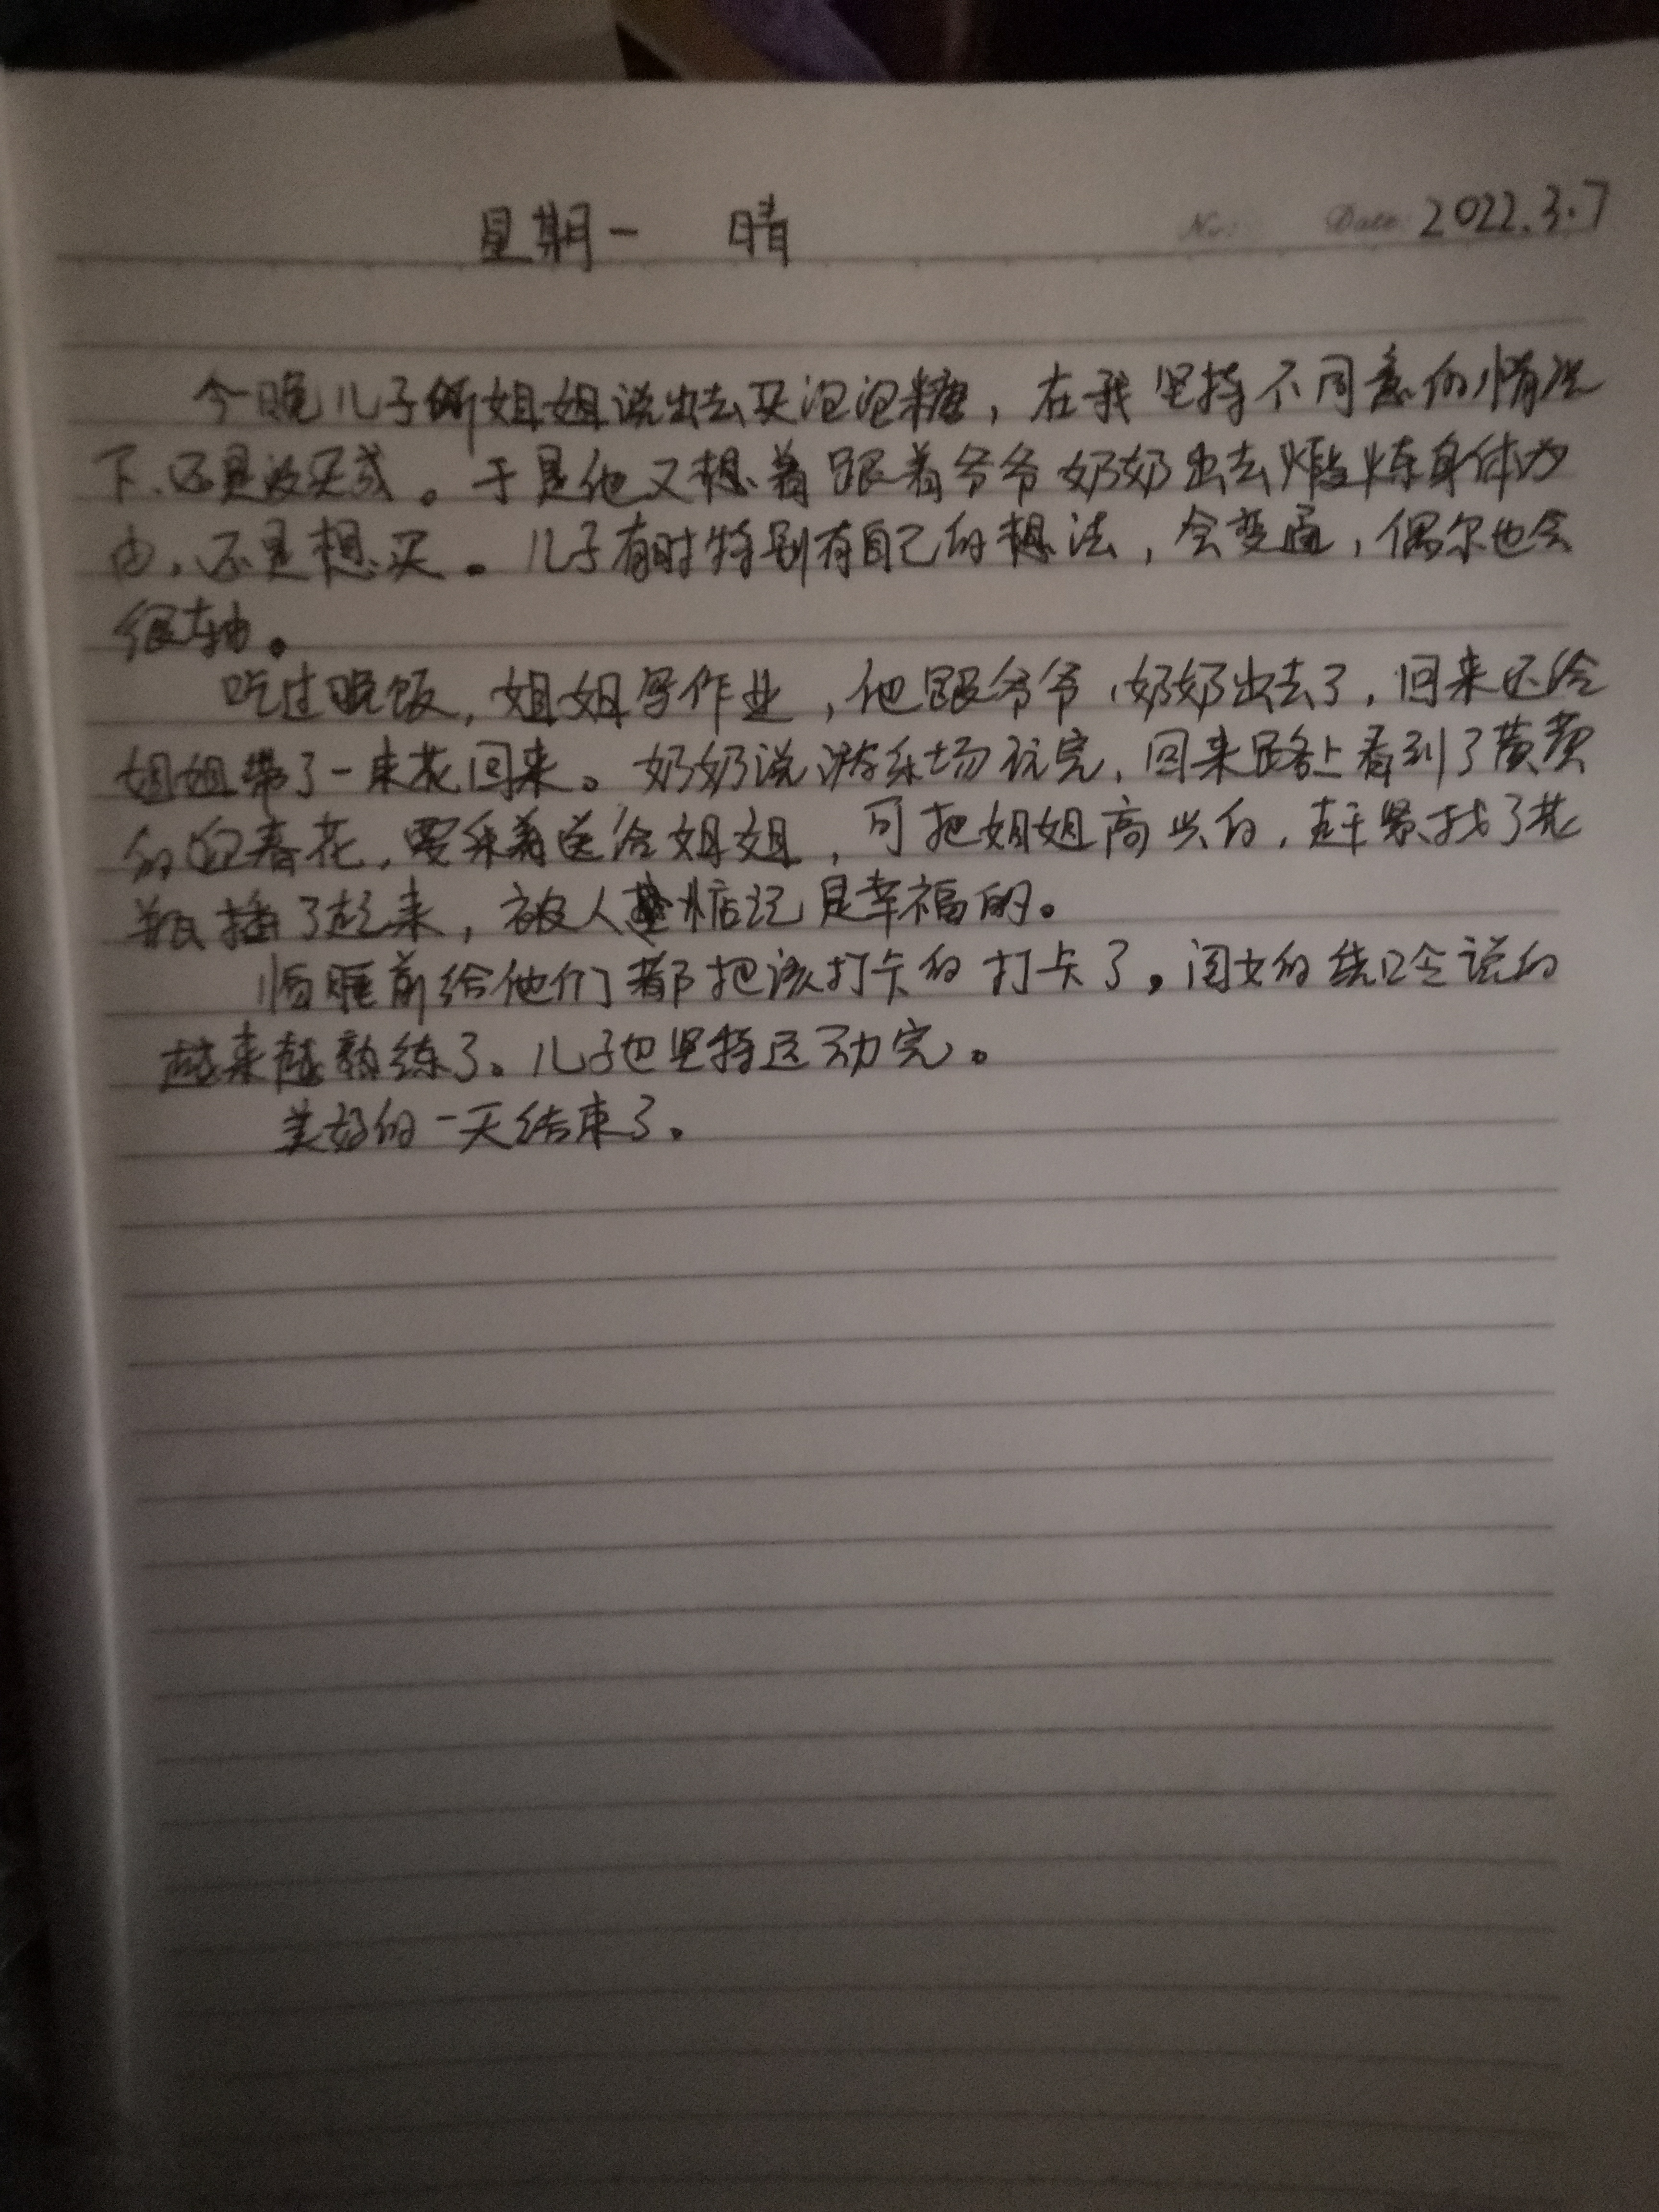 星期一 晴 No: Date: 2022.3.7
今晚儿子听姐姐说出去买泡泡糖，在我坚持不同意的情况
下、还是没买成。于是他又想着跟着爷爷奶奶出去煅炼身体为
由，还是想买。儿子有时特别有自己的想法，会变通，偶尔也会
很轴。
吃过晚饭，姐姐写作业，他跟爷爷，奶奶出去了，回来还给
姐姐带了一束花回来。奶奶说游乐场玩完，回来路上看到了黄黄
的迎春花，要采着送给姐姐，可把姐姐高兴的，赶紧找了花
瓶插了起来，被人惦记是幸福的。
临睡前给他们都把该打卡的打卡了。闺女的绕口令说的
越来越熟练了。儿子也坚持运动完。
美好的一天结束了。